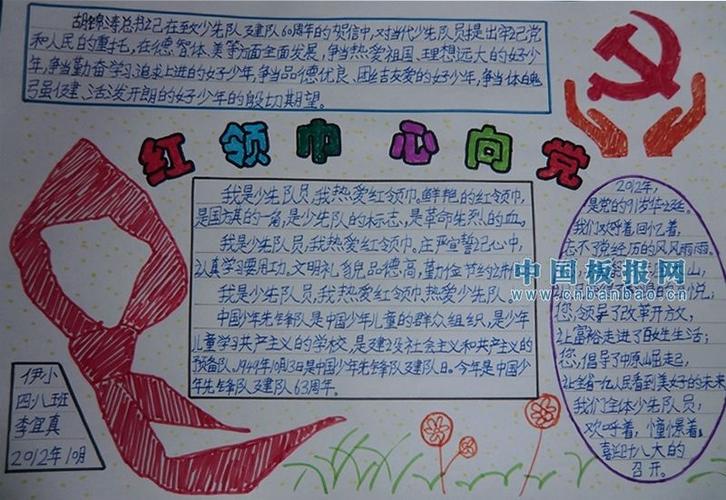 胡锦涛总书记在致少先队建队60周年的贺信中,对当代少先队员提出牢记党
和人民的重托,在德智体、美等方面全面发展,争当热爱祖国、理想远大的好少
年,争当勤奋学习、追求上进的好少年,争当品德优良、团结友爱的好少年,争当体魄
强健、活泼开朗的好少年的殷切期望。
红领巾 心向党
我是少先队员,我热爱红领巾。鲜艳的红领巾,
是国旗的一角,是少先队的标志,是革命先烈的血。
我是少先队员,我热爱红领巾。庄严宣誓记心中,
认真学习要用功。文明礼貌品德高,勤俭节约
我是少先队员,我热爱红领巾热爱少先队
中国少年先锋队是中国少年儿童的群众组织,是少年
儿童学习共产主义的学校,是建设社会主义和共产主义的
预备队。1949年10月13日是中国少年先锋队建队日。今年是中国少
年先锋队建队63周年。
2012年,
是党的91岁华诞。
我们欢呼着,回忆着,
忘不了党经历的风风雨雨。
山,
悦;
您,领导了改革开放,
让富裕走进了百姓生活;
您,倡导了中原崛起,
让全省一亿人民看到美好的未来
我们全体少先队员,
欢呼着,憧憬着,
喜迎十八大的
召开。
中国板报网
www.cnbanbao.cn
伊小
四八班
李宜真
2012年10月